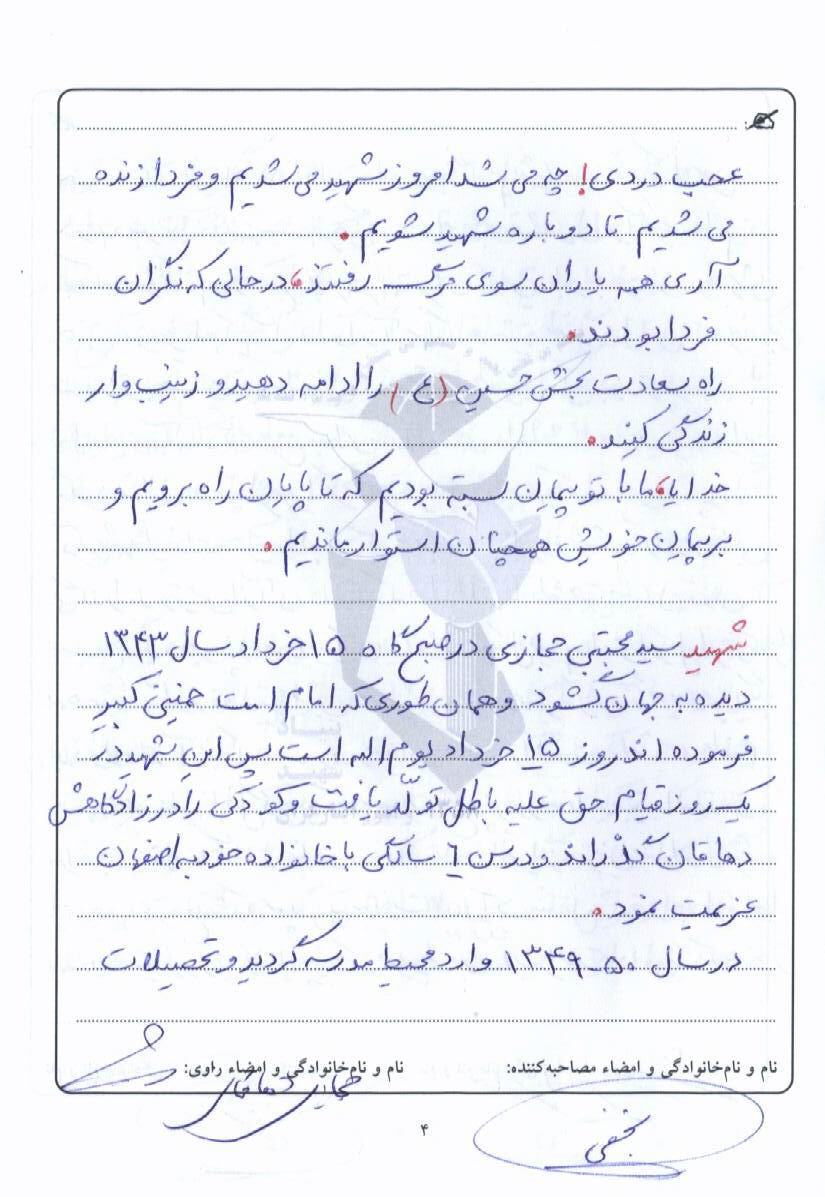 عجب دردی! چه می شد امروز شهید می شدیم و فردا زنده
می شدیم تا دوباره شهید شویم.
آری همه یاران سوی مرگ رفتند، در حالی که نگران
فردا بودند.
راه سعادت بخش حسین (ع) را ادامه دهید و زینب وار
زندگی کنید.
خدایا، ما با تو پیمان بسته بودیم که تا پایان راه برویم و
بر پیمان خویش همچنان استوار ماندیم.
شهید سید مجتبی حجازی در صبح گاه ۱۵ خرداد سال ۱۳۴۳
دیده به جهان گشود و همان طوری که امام امت خمینی کبیر
فرموده اند روز ۱۵ خرداد یوم الله است پس این شهید در
یک روز قیام حق علیه باطل تولّد یافت و کودکی را در زادگاهش
دهاقان گذراند و در سن ۶ سالگی با خانواده خود به اصفهان
عزیمت نمود.
در سال ۵۰-۱۳۴۹ وارد محیط مدرسه گردید و تحصیلات
نام و نام‌خانوادگی و امضاء مصاحبه‌کننده:
نام و نام‌خانوادگی و امضاء راوی:
نجفی
۴